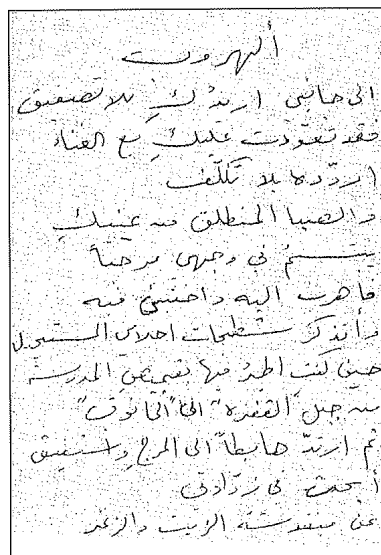 ألهروت
الى جانبي اريدُكِ بلا تصفيق
فقد تعودت عليكِ مع الغناء
اردّده بلا تكلّف
والصبا المنطلق من عينيكِ
يبتسمُ في وجهي مرحباً
فأهرب اليه واختبئ فيه
وأتذكر شطحات احلامي المستحيل
حين كنت اطيرُ فيها بقميص المدرسة
من جبل "القفزه" الى "الخانوق"
ثم ارتدّ هابطاً الى المرج واستفيق
أبحث في زوّادتي
عن سندوشة الزيت والزعتر